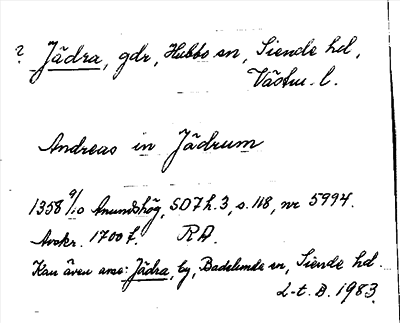 ? Jädra, gdr, Hubbo sn, Siende hd,
Västm. l.
Andreas in Jädrum
1358 9/10 Anundshög, SD 7 h. 3, s. 118, nr 5994.
Avskr. 1700 t. RA.
Kan även avse: Jädra, by, Badelunda sn, Siende hd.
L-t. B. 1983.